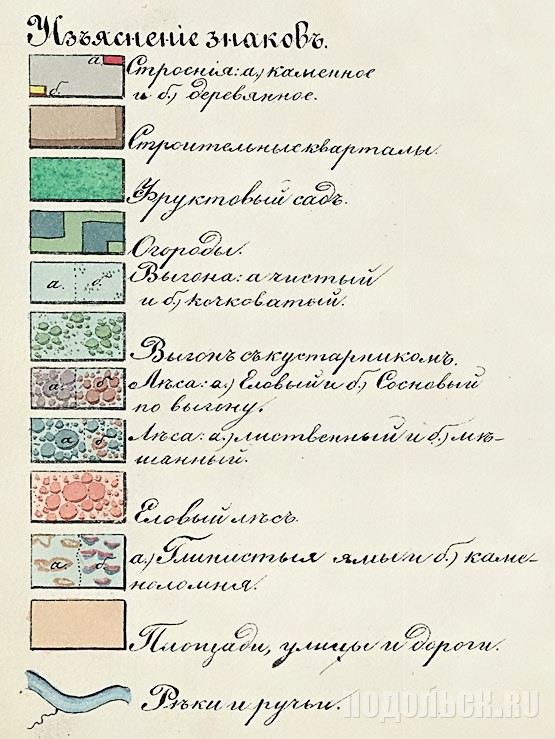 Изъясненіе знаковъ.
а.
б.
Строенія: а.) каменное
и б.) деревянное.
Строительные кварталы.
Фруктовый садъ.
Огороды.
а.
б.
Выгона: а чистый
и б.) кочковатый.
Выгонъ съ кустарникомъ.
а
б
Лѣса: а.) Еловый и б.) Сосновый
по выгону.
а
б
Лѣса: а.) лиственный и б.) мѣ-
шанный.
Еловый лѣсъ.
а.
б.
а.) Глинистыя ямы и б.) каме-
ноломня.
Площади, улицы и дороги.
Рѣки и ручьи.
ПОДОЛЬСК.RU